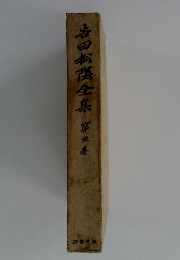 吉田松陰全集
第五卷